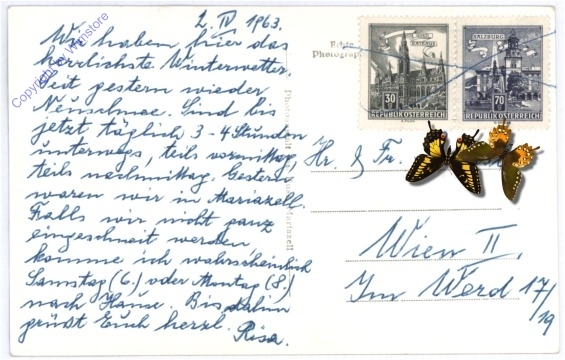 2. IV 1963.
Wir haben hier das
herrlichste Winterwetter.
Seit gestern wieder
Neuschnee. Sind bis
jetzt täglich 3-4 Stunden
unterwegs, teils vormittag,
teils nachmittag. Gestern
waren wir in Mariazell.
Falls wir nicht ganz
eingeschneit werden,
komme ich wahrscheinlich
Samstag (6.) oder Montag (8.)
nach Hause. Bis dahin
grüßt Euch herzl. Risa.
Copyright by
Echte
Photograph
Mariazell
WIEN
RATHAUS
30
REPUBLIK ÖSTERREICH
SALZBURG
70
REPUBLIK ÖSTERREICH
Hr. & Fr.
Wien II.
Im Werd 17/
19